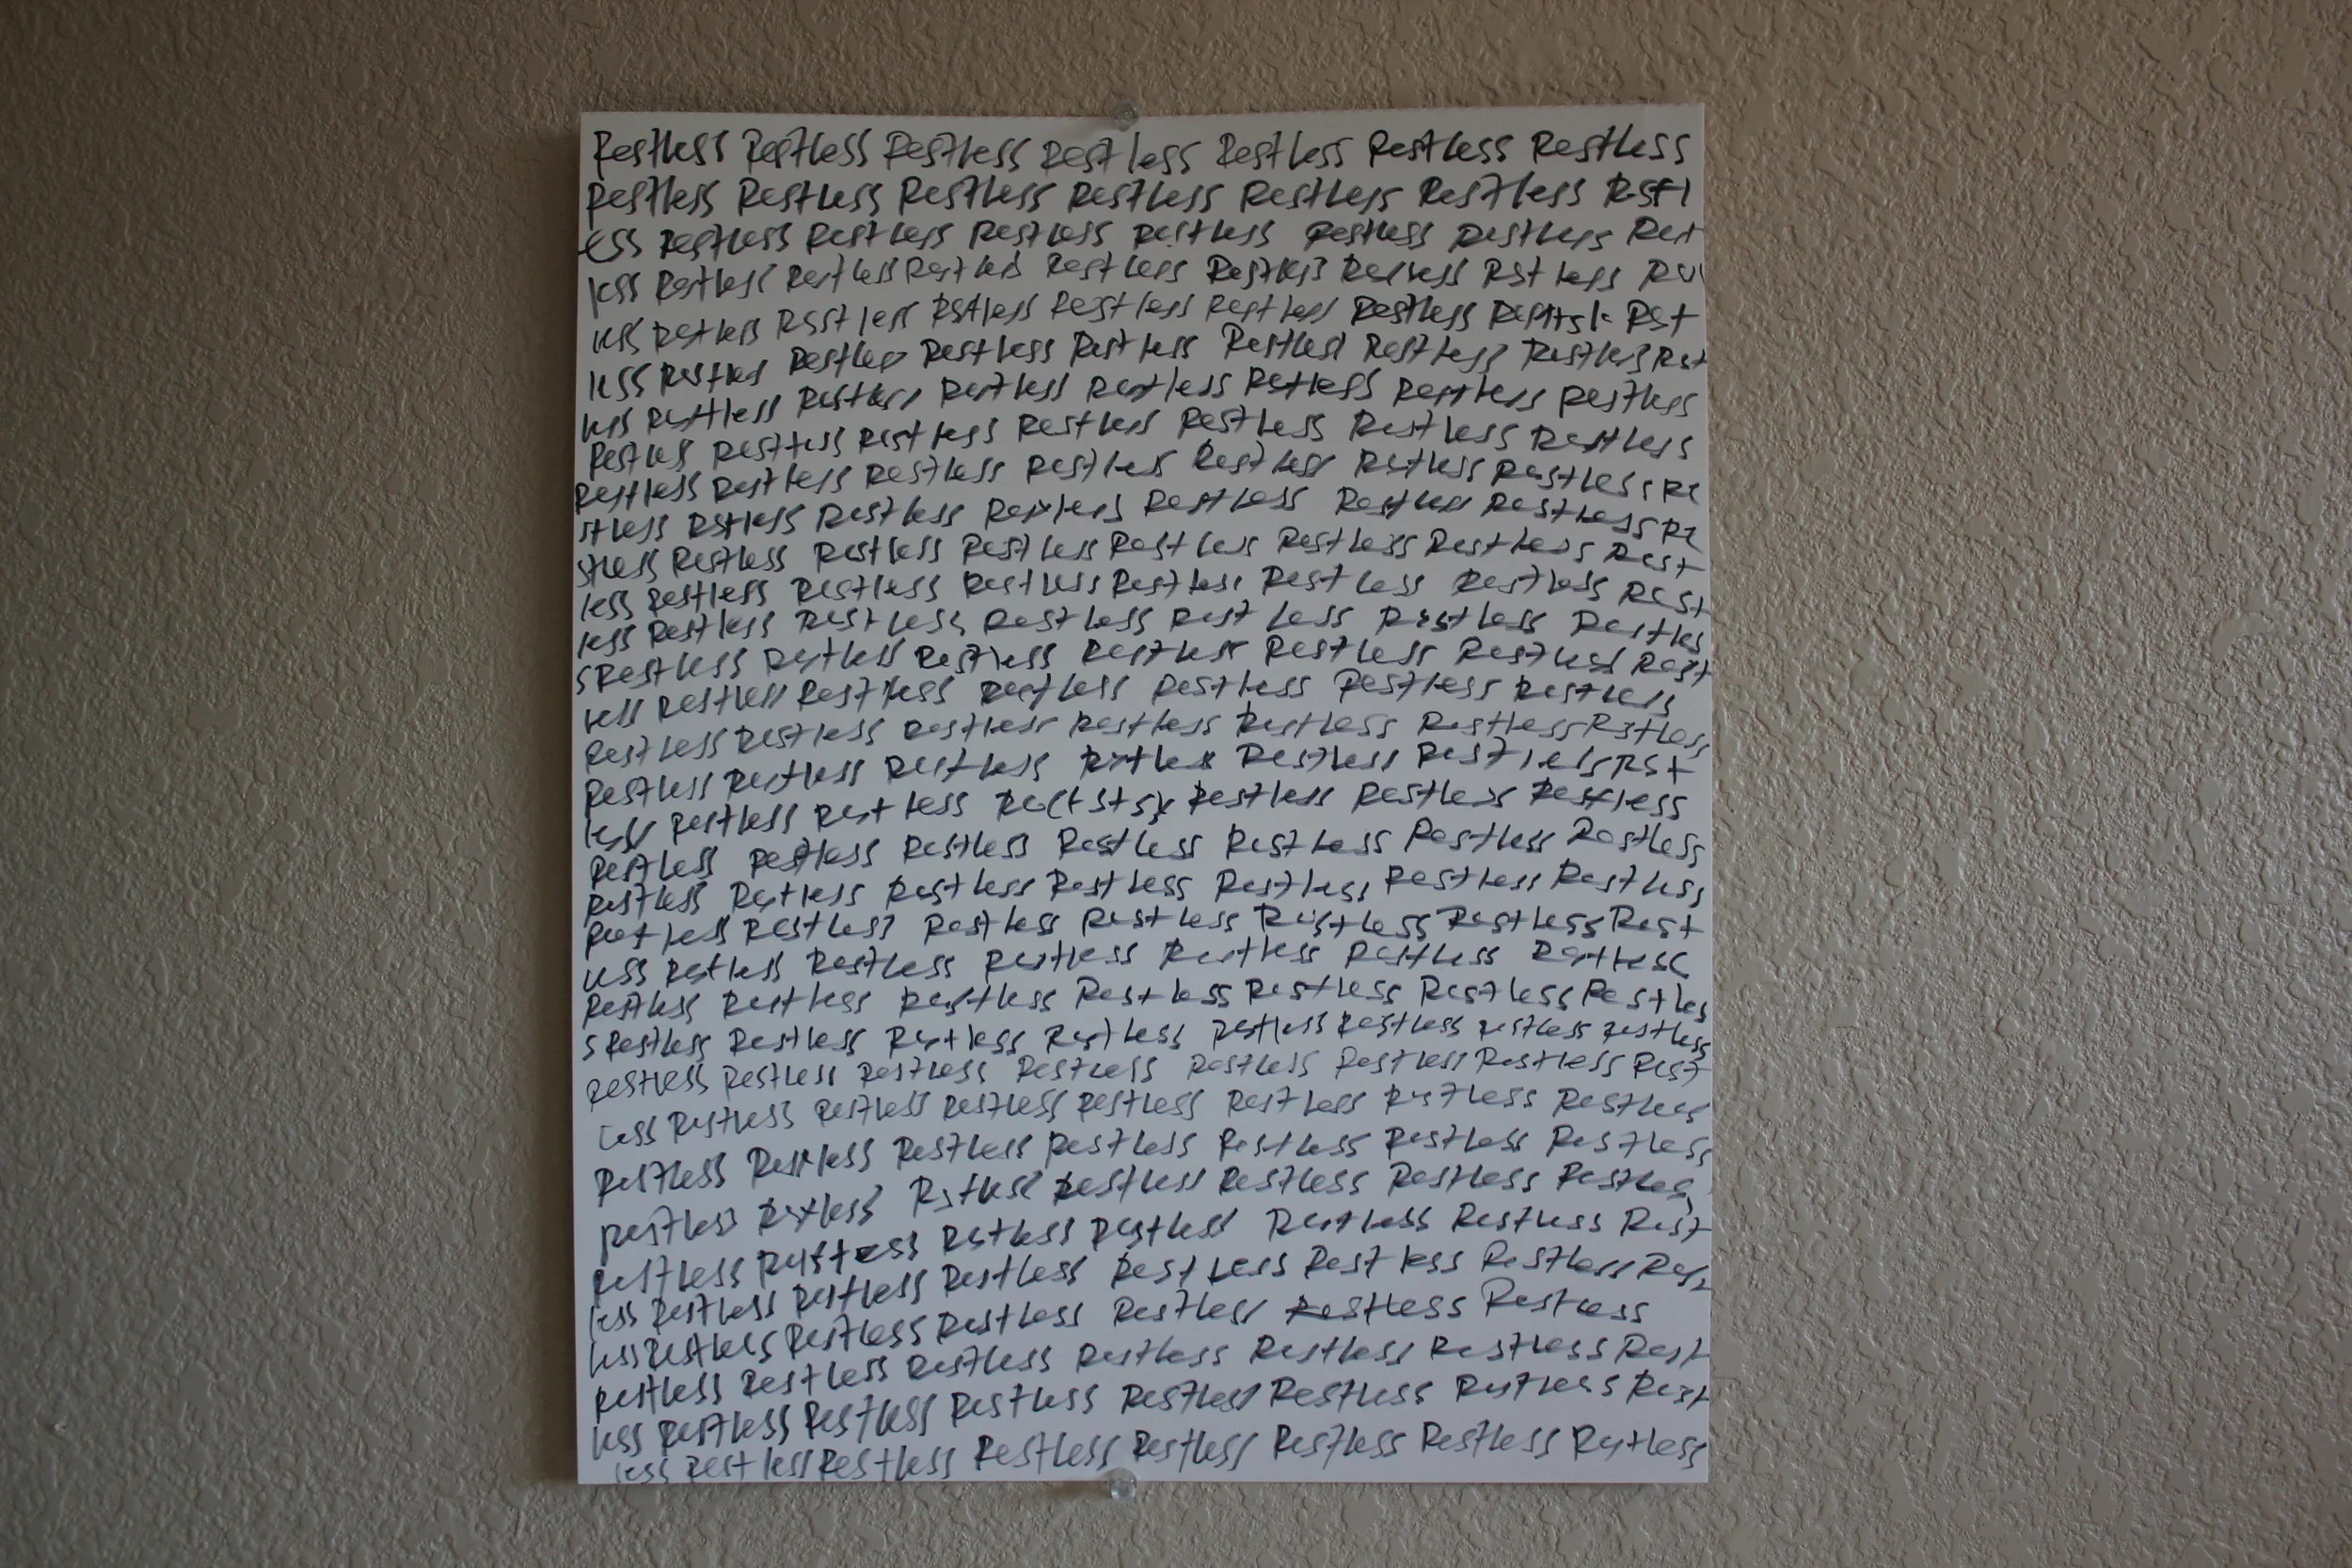 Restless Restless Restless Restless Restless Restless Restless
Restless Restless Restless Restless Restless Restless Rstl
ess Restless Restless Restless Restless Restless Restless Rest
less Restless Restless Restless Restless Restless Rstless
less Restless Rsstless Rstless Restless Restless Restless Rst
less Restless Restless Restless Restless Restless Restless Restless Rst
less Restless Restless Restless Restless Restless Restless Restless
Restless Restless Restless Restless Restless Restless Restless
Restless Restless Restless Restless Restless Restless Restless Re
stless Rstless Restless Restless Restless Restless Restless Re
stless Restless Restless Restless Restless Restless Restless Rest
less Restless Restless Restless Restless Restless Restless Rest
less Restless Restless Restless Restless Restless Restles
s Restless Restless Restless Restless Restless Restless Rest
less Restless Restless Restless Restless Restless Restless
Restless Restless Restless Restless Restless Restless Rstless
Restless Restless Restless Restless Restless Restless Rst
less Restless Restless Restless Restless Restless
Restless Restless Restless Restless Restless Restless Restless
Restless Restless Restless Restless Restless Restless Restless
Restless Restless Restless Restless Restless Restless Rest
less Restless Restless Restless Restless Restless Restless
Restless Restless Restless Restless Restless Restless Restles
s Restless Restless Restless Restless Restless Restless Restless Restless
Restless Restless Restless Restless Restless Restless Restless Rest
less Restless Restless Restless Restless Restless Restless Restless
Restless Restless Restless Restless Restless Restless Restless
Restless Restless Rstless Restless Restless Restless Restless
Restless Restless Restless Restless Restless Restless Rest
less Restless Restless Restless Restless Restless Restless Rest
less Restless Restless Restless Restless Restless Restless
Restless Restless Restless Restless Restless Restless Rest
less Restless Restless Restless Restless Restless Restless Rest
less Restless Restless Restless Restless Restless Restless Restless